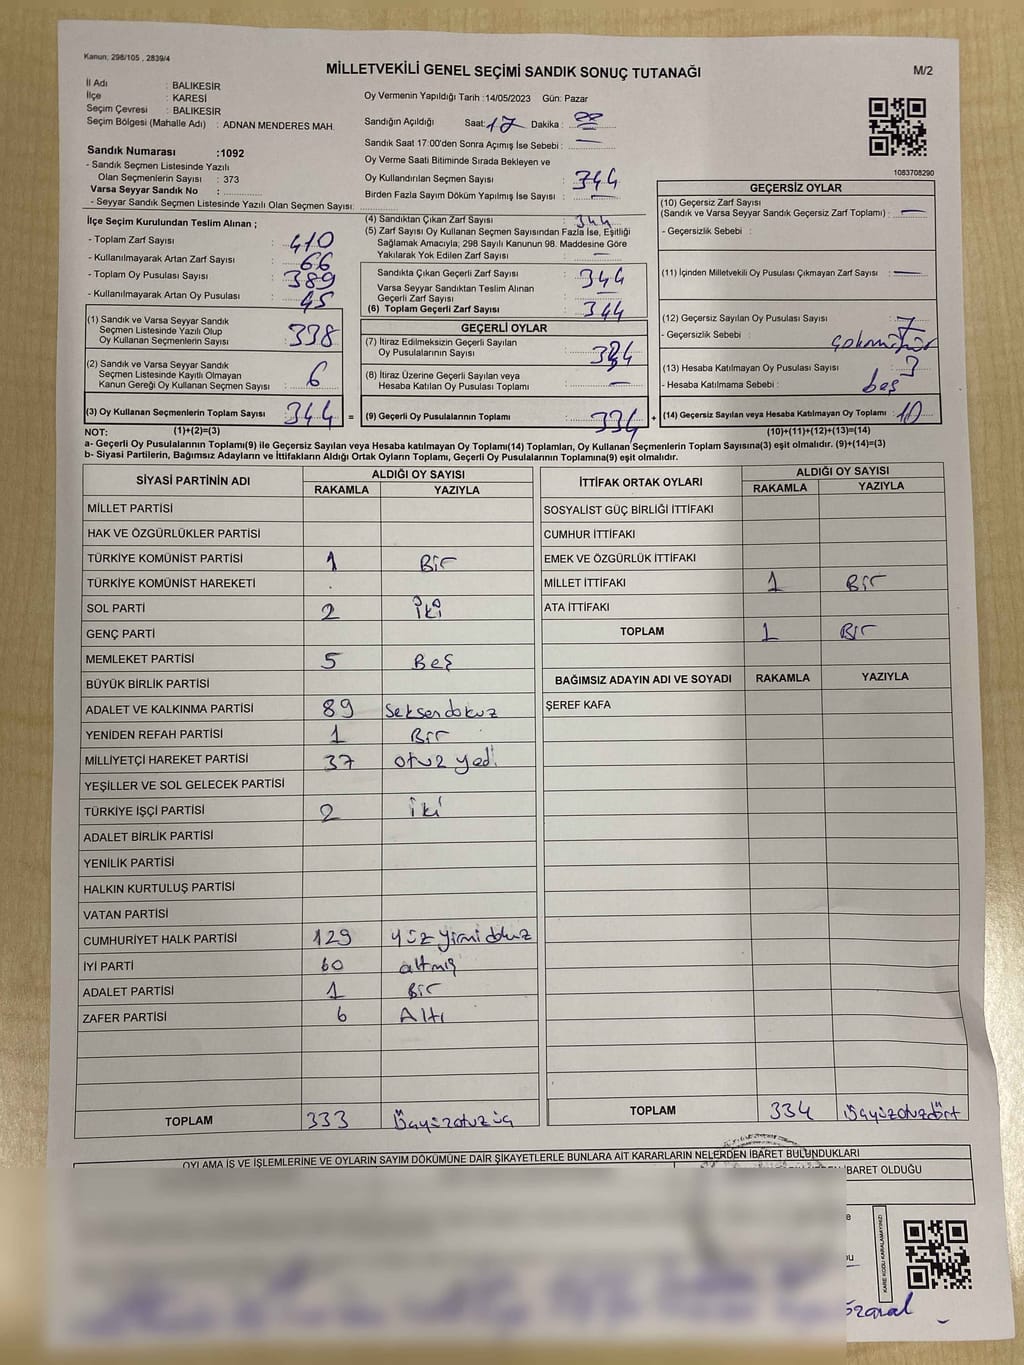 Kanun; 298/105 , 2839/4
MİLLETVEKİLİ GENEL SEÇİMİ SANDIK SONUÇ TUTANAĞI
M/2
İl Adı : BALIKESİR
İlçe : KARESİ
Seçim Çevresi : BALIKESİR
Seçim Bölgesi (Mahalle Adı) : ADNAN MENDERES MAH.
Sandık Numarası :1092
- Sandık Seçmen Listesinde Yazılı
Olan Seçmenlerin Sayısı : 373
Varsa Seyyar Sandık No :
- Seyyar Sandık Seçmen Listesinde Yazılı Olan Seçmen Sayısı:
Oy Vermenin Yapıldığı Tarih :14/05/2023 Gün: Pazar
Sandığın Açıldığı Saat: 17 Dakika :
Sandık Saat 17:00'den Sonra Açımış İse Sebebi : —
Oy Verme Saati Bitiminde Sırada Bekleyen ve
Oy Kullandırılan Seçmen Sayısı : 344
Birden Fazla Sayım Döküm Yapılmış İse Sayısı : —
1083708290
İlçe Seçim Kurulundan Teslim Alınan ;
- Toplam Zarf Sayısı : 410
- Kullanılmayarak Artan Zarf Sayısı : 66
- Toplam Oy Pusulası Sayısı : 389
- Kullanılmayarak Artan Oy Pusulası : 45
(1) Sandık ve Varsa Seyyar Sandık
Seçmen Listesinde Yazılı Olup
Oy Kullanan Seçmenlerin Sayısı : 338
(2) Sandık ve Varsa Seyyar Sandık
Seçmen Listesinde Kayıtlı Olmayan
Kanun Gereği Oy Kullanan Seçmen Sayısı : 6
(3) Oy Kullanan Seçmenlerin Toplam Sayısı : 344 =
(4) Sandıktan Çıkan Zarf Sayısı : 344
(5) Zarf Sayısı Oy Kullanan Seçmen Sayısından Fazla İse, Eşitliği
Sağlamak Amacıyla; 298 Sayılı Kanunun 98. Maddesine Göre
Yakılarak Yok Edilen Zarf Sayısı : —
Sandıkta Çıkan Geçerli Zarf Sayısı : 344
Varsa Seyyar Sandıktan Teslim Alınan
Geçerli Zarf Sayısı : —
(6) Toplam Geçerli Zarf Sayısı : 344
GEÇERLİ OYLAR
(7) İtiraz Edilmeksizin Geçerli Sayılan
Oy Pusulalarının Sayısı :
(8) İtiraz Üzerine Geçerli Sayılan veya
Hesaba Katılan Oy Pusulası Toplamı : —
(9) Geçerli Oy Pusulalarının Toplamı : 334 +
GEÇERSİZ OYLAR
(10) Geçersiz Zarf Sayısı
(Sandık ve Varsa Seyyar Sandık Geçersiz Zarf Toplamı) : —
- Geçersizlik Sebebi :
(11) İçinden Milletvekili Oy Pusulası Çıkmayan Zarf Sayısı : —
(12) Geçersiz Sayılan Oy Pusulası Sayısı : 7
- Geçersizlik Sebebi :
(13) Hesaba Katılmayan Oy Pusulası Sayısı : 3
- Hesaba Katılmama Sebebi : beş
(14) Geçersiz Sayılan veya Hesaba Katılmayan Oy Toplamı : 10
NOT: (1)+(2)=(3)
(10)+(11)+(12)+(13)=(14)
a- Geçerli Oy Pusulalarının Toplamı(9) ile Geçersiz Sayılan veya Hesaba katılmayan Oy Toplamı(14) Toplamları, Oy Kullanan Seçmenlerin Toplam Sayısına(3) eşit olmalıdır. (9)+(14)=(3)
b- Siyasi Partilerin, Bağımsız Adayların ve İttifakların Aldığı Ortak Oyların Toplamı, Geçerli Oy Pusulalarının Toplamına(9) eşit olmalıdır.
SİYASİ PARTİNİN ADI ALDIĞI OY SAYISI
RAKAMLA YAZIYLA
MİLLET PARTİSİ
HAK VE ÖZGÜRLÜKLER PARTİSİ
TÜRKİYE KOMÜNİST PARTİSİ 1 Bir
TÜRKİYE KOMÜNİST HAREKETİ
SOL PARTİ 2 İki
GENÇ PARTİ
MEMLEKET PARTİSİ 5 Beş
BÜYÜK BİRLİK PARTİSİ
ADALET VE KALKINMA PARTİSİ 89 Seksendokuz
YENİDEN REFAH PARTİSİ 1 Bir
MİLLİYETÇİ HAREKET PARTİSİ 37 otuz yedi
YEŞİLLER VE SOL GELECEK PARTİSİ
TÜRKİYE İŞÇİ PARTİSİ 2 iki
ADALET BİRLİK PARTİSİ
YENİLİK PARTİSİ
HALKIN KURTULUŞ PARTİSİ
VATAN PARTİSİ
CUMHURİYET HALK PARTİSİ 129 yüz yirmi dokuz
İYİ PARTİ 60 altmış
ADALET PARTİSİ 1 Bir
ZAFER PARTİSİ 6 Altı
TOPLAM 333 Üçyüzotuzüç
İTTİFAK ORTAK OYLARI ALDIĞI OY SAYISI
RAKAMLA YAZIYLA
SOSYALİST GÜÇ BİRLİĞİ İTTİFAKI
CUMHUR İTTİFAKI
EMEK VE ÖZGÜRLÜK İTTİFAKI
MİLLET İTTİFAKI 1 Bir
ATA İTTİFAKI
TOPLAM 1 Bir
BAĞIMSIZ ADAYIN ADI VE SOYADI RAKAMLA YAZIYLA
ŞEREF KAFA
TOPLAM 334 Üçyüzotuzdört
OYLAMA İŞ VE İŞLEMLERİNE VE OYLARIN SAYIM DÖKÜMÜNE DAİR ŞİKAYETLERLE BUNLARA AİT KARARLARIN NELERDEN İBARET BULUNDUKLARI
İBARET OLDUĞU
KARE KODU KARALAMAYINIZ!